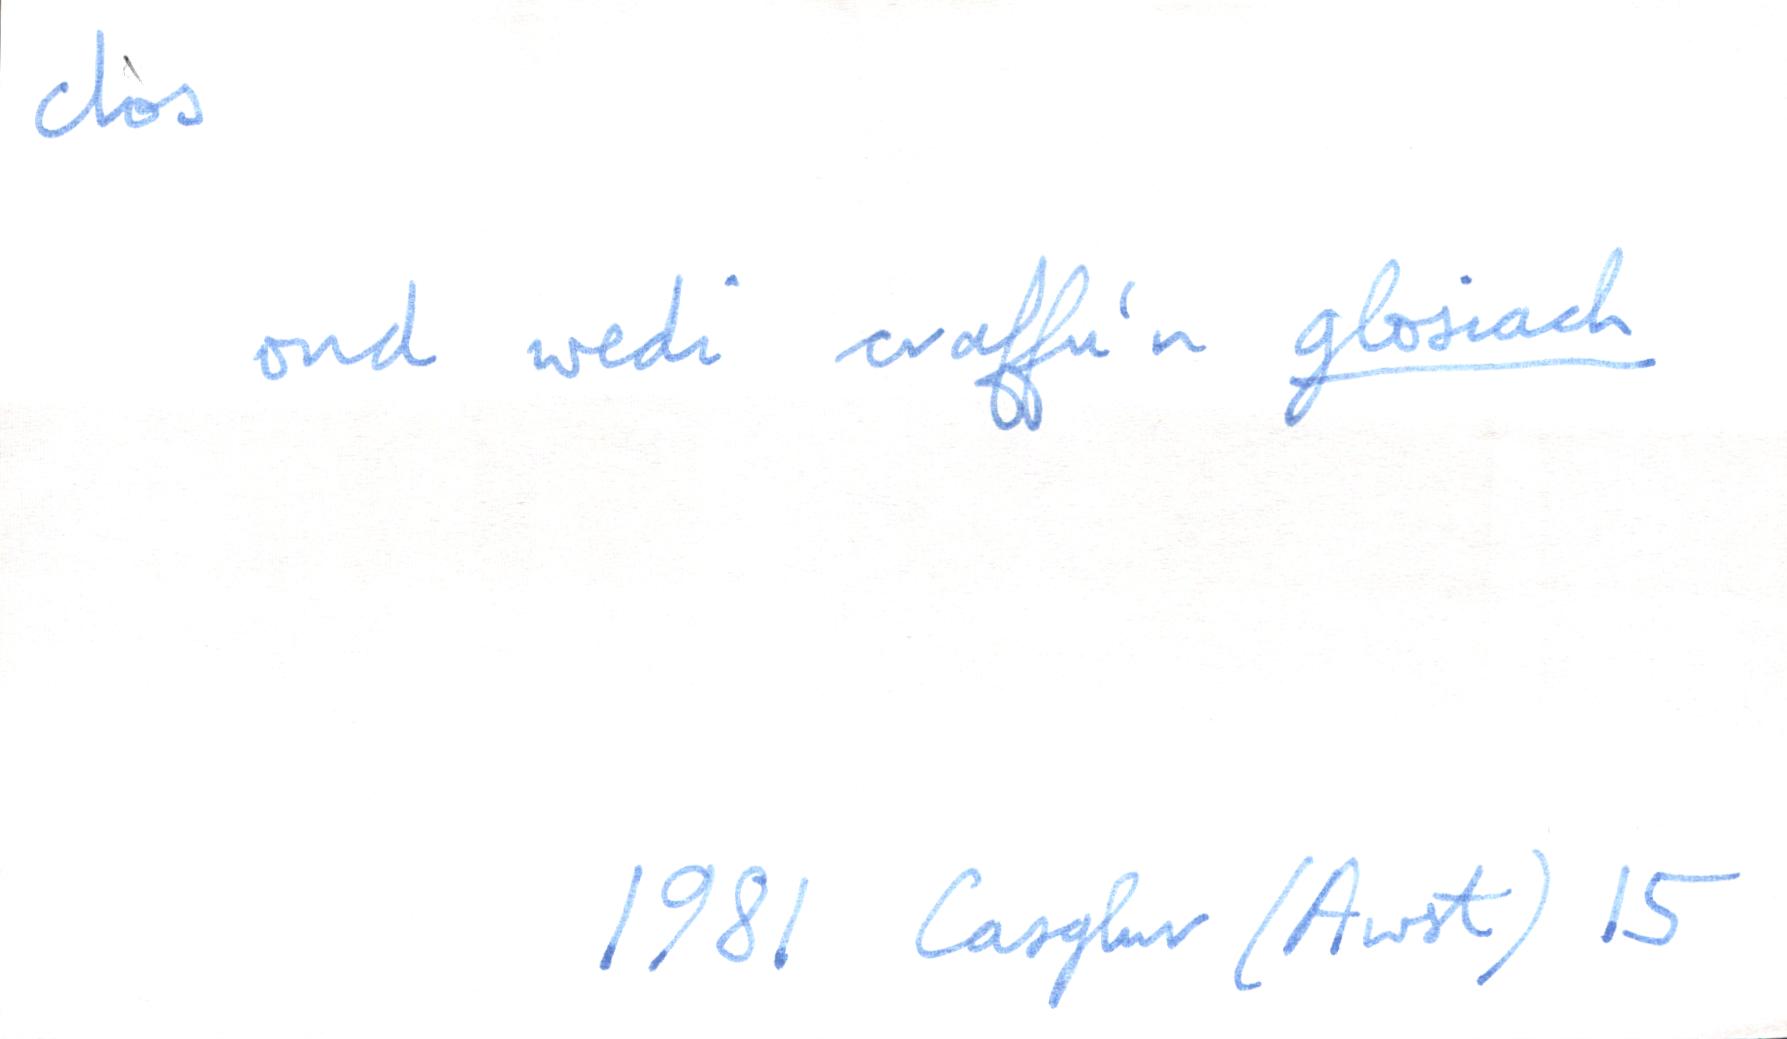 clòs
ond wedi craffu'n glosiach
1981 Casglwr (Awst) 15